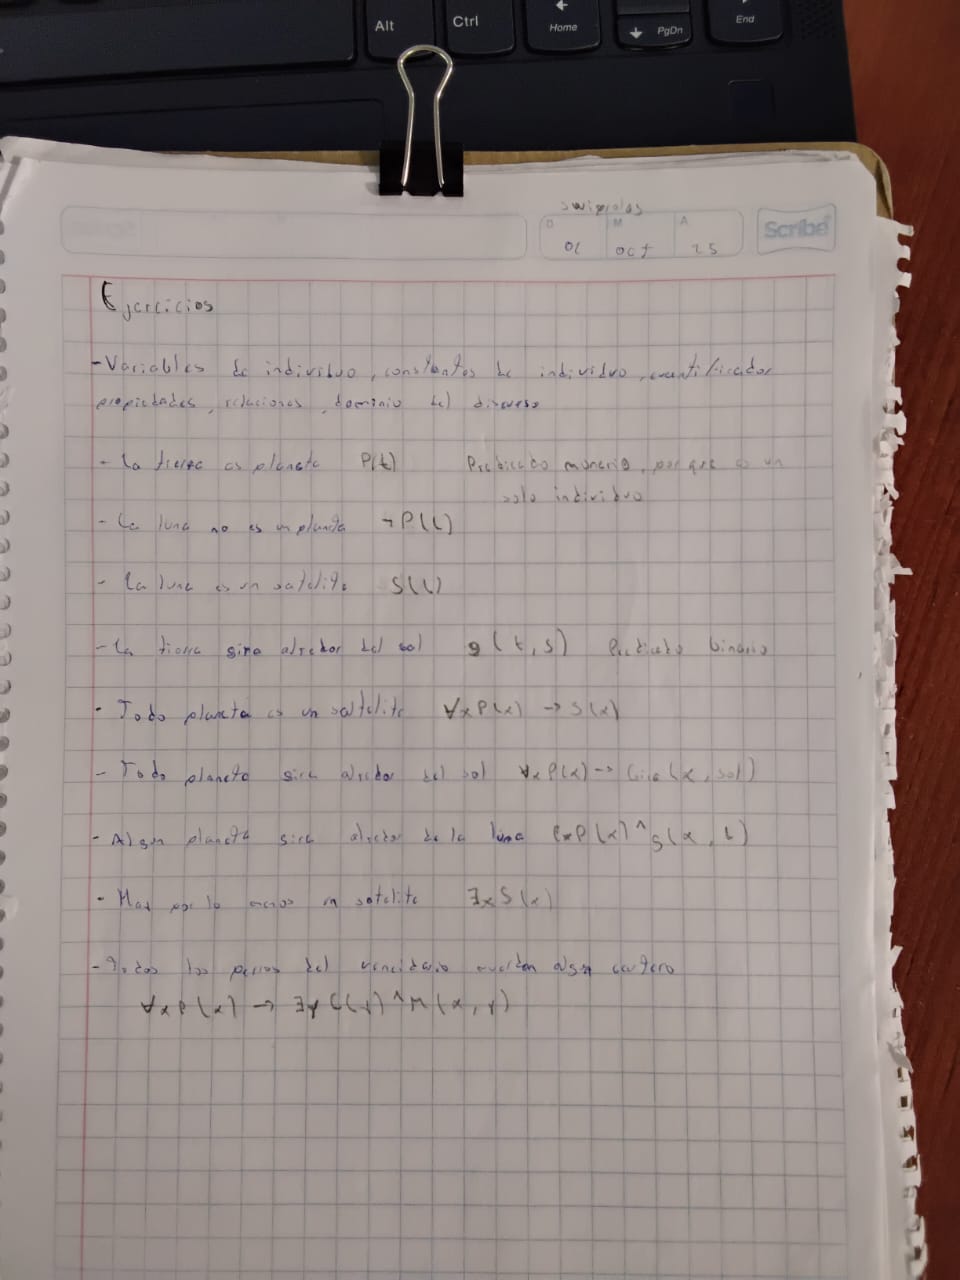 Alt
Ctrl
Home
PgDn
End
swiprolog
D M A
01 oct 25
Scribe
Ejercicios
- Variables de individuo, constantes de individuo, cuantificador
propiedades, relaciones, dominio del discurso
- La tierra es planeta P(t) Predicado monario, por que es un
solo individuo
- La luna no es un planeta ¬P(L)
- La luna es un satelite S(L)
- La tierra gira alredor del sol g(t,s) Predicado binario
- Todo planeta es un satelite ∀xP(x) → S(x)
- Todo planeta gira alredor del sol ∀xP(x) → Gira(x, sol)
- Algun planeta gira alredor de la luna ∃xP(x) ^ g(x, L)
- Hay por lo menos un satelite ∃xS(x)
- Todos los perros del vencidario muerden algun cartero
∀xP(x) → ∃y C(y) ^ M(x, y)